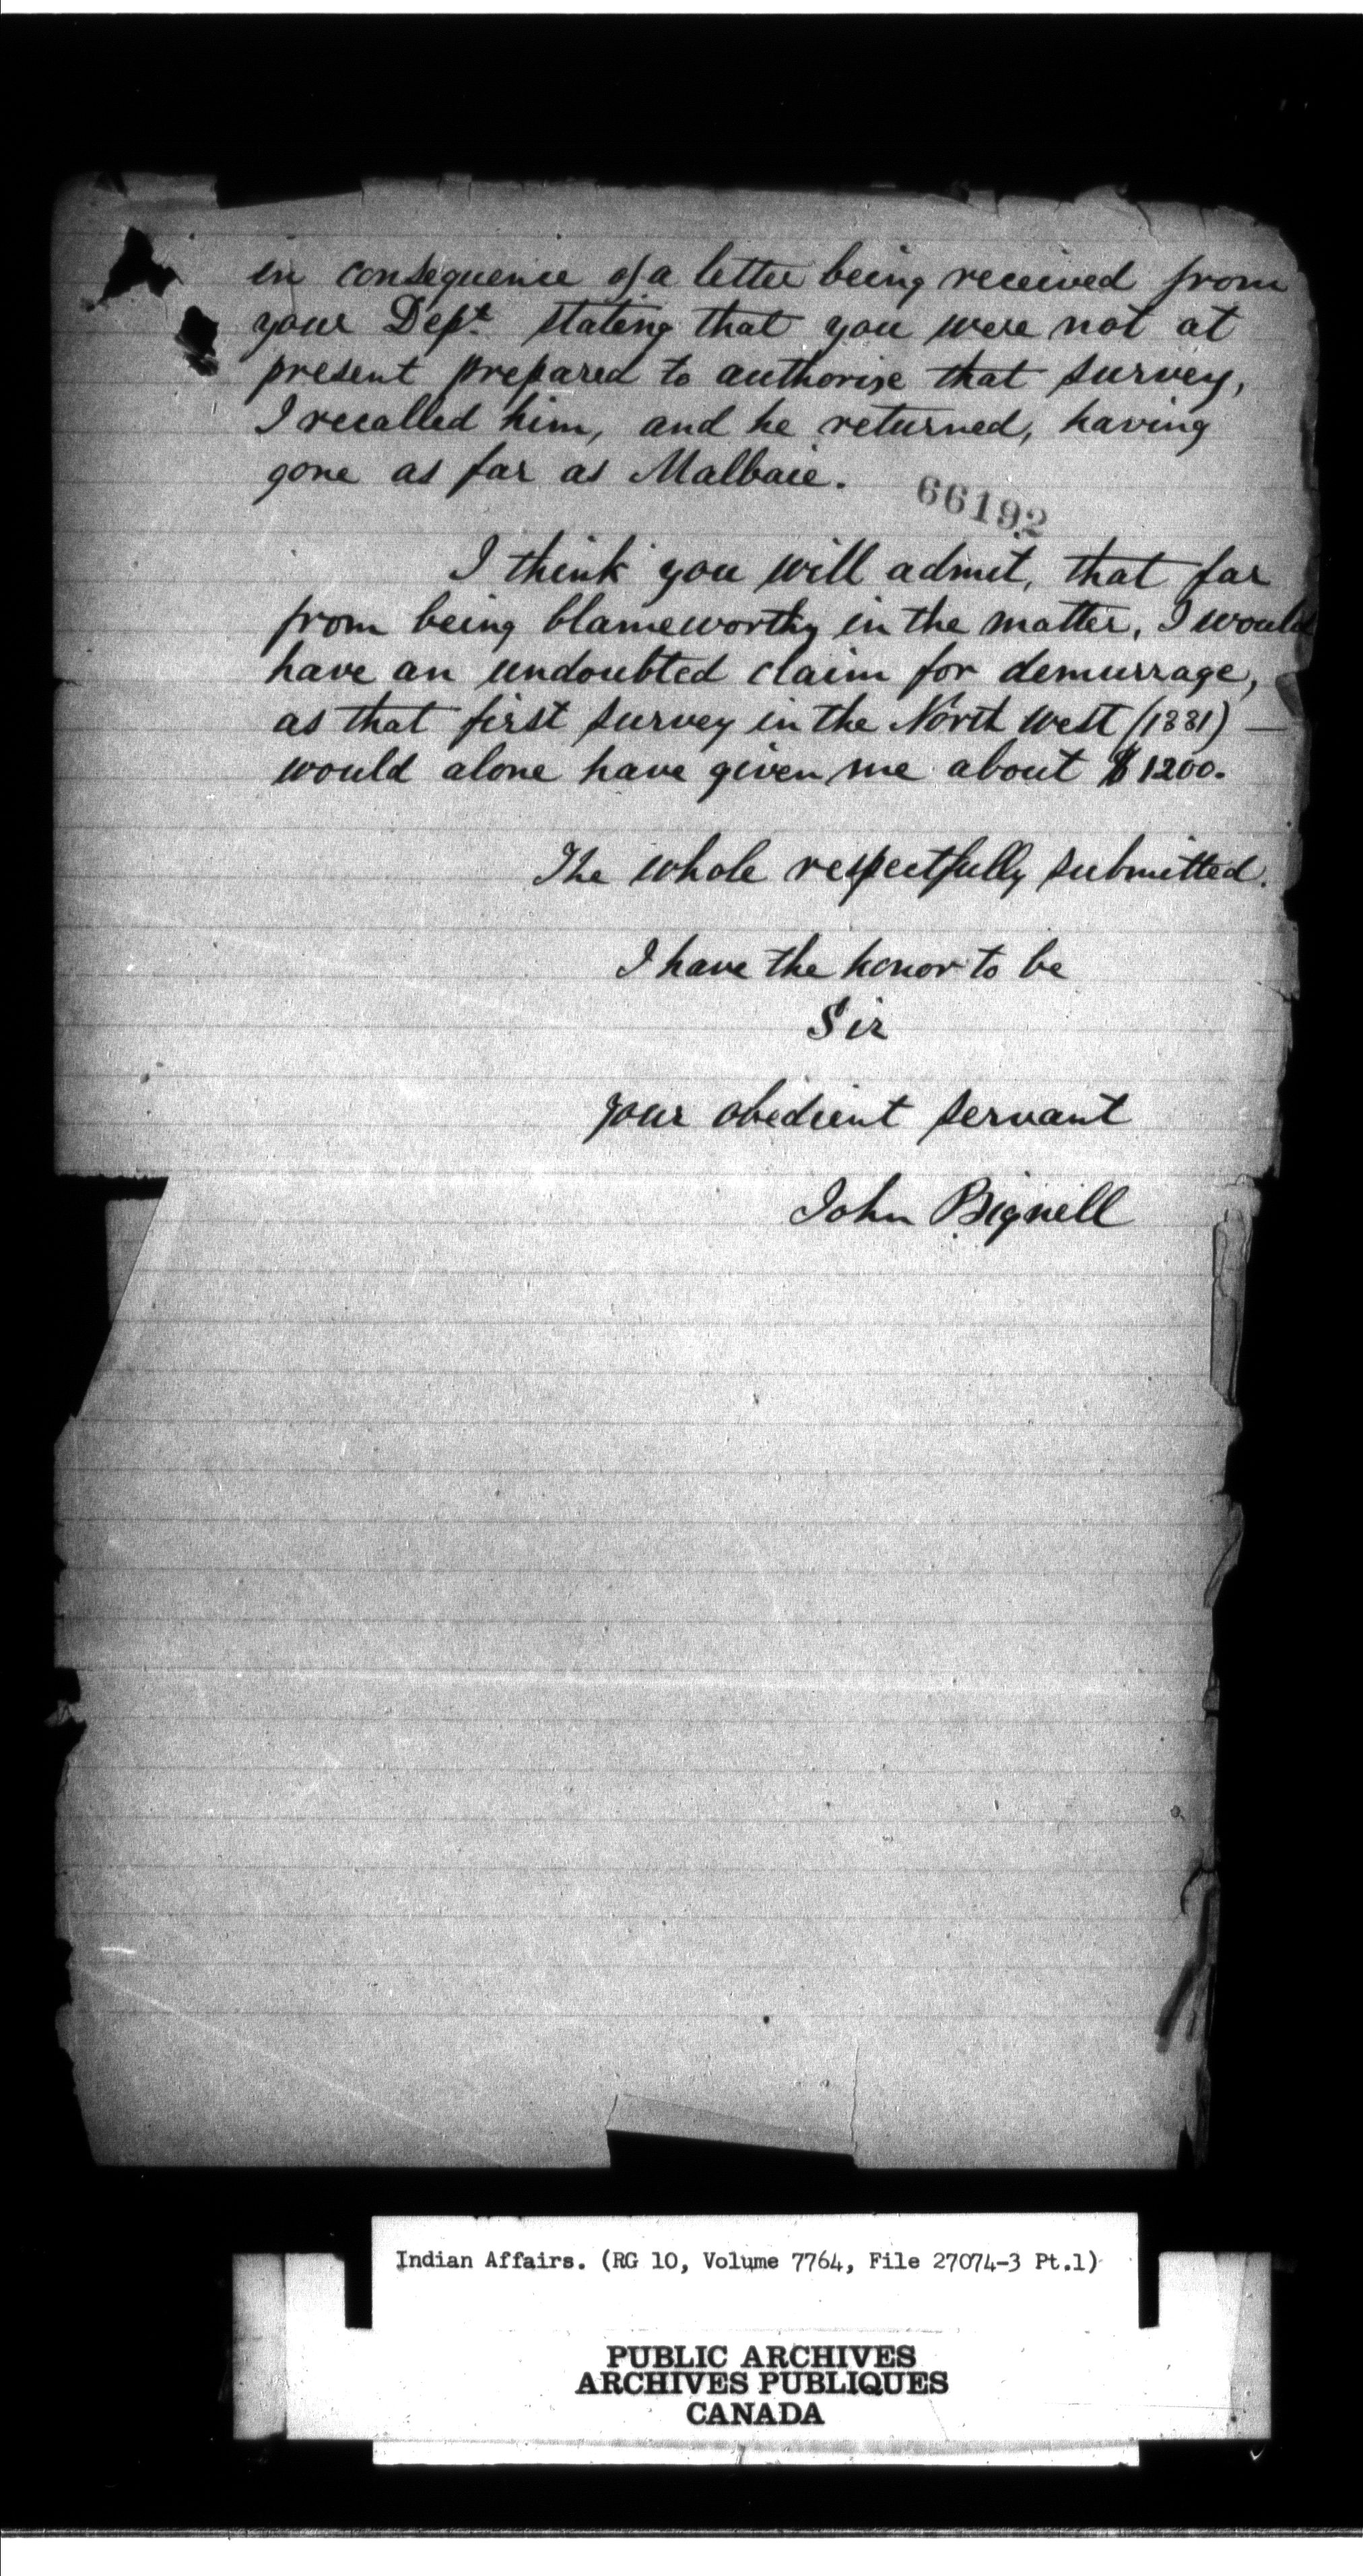 in consequence of a letter being received from
your Dept stating that you were not at
present prepared to authorise that survey,
I recalled him, and he returned, having
gone as far as Malbaie.
66192
I think you will admit, that far
from being blameworthy in the matter, I would
have an undoubted claim for demurrage,
as that first survey in the North West (1881) —
would alone have given me about $1200.
The whole respectfully submitted.
I have the honor to be
Sir
your obedient servant
John Bignell
Indian Affairs. (RG 10, Volume 7764, File 27074-3 Pt.1)
PUBLIC ARCHIVES
ARCHIVES PUBLIQUES
CANADA